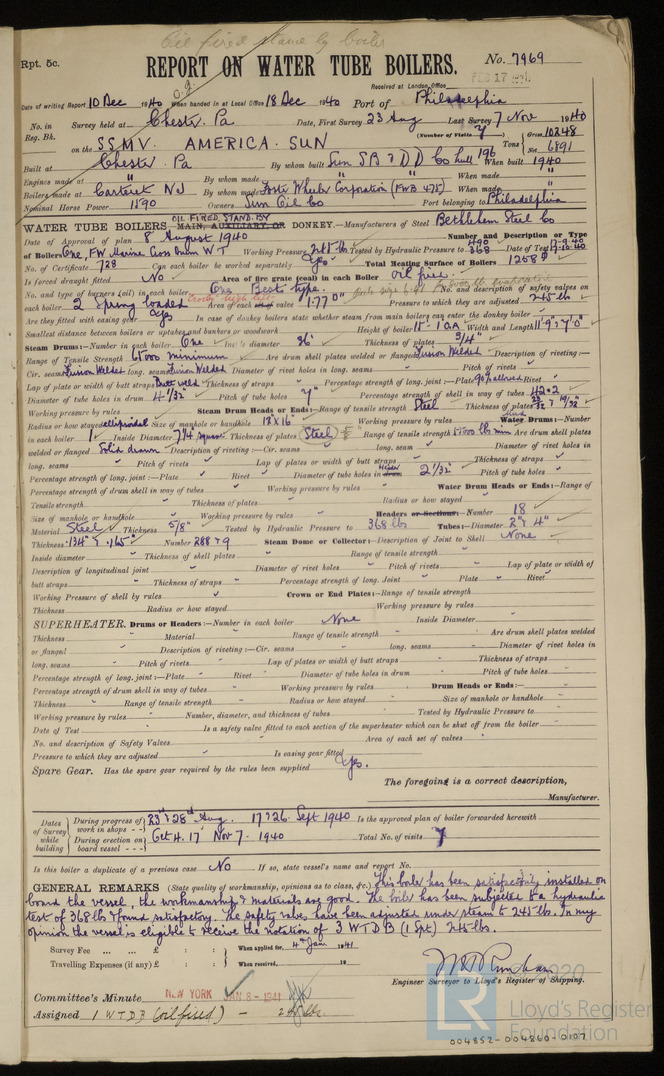 Oil fired stand by boiler
Rpt. 5c.
REPORT ON WATER TUBE BOILERS.
No. 7969
Received at London Office FEB 17 1941
Date of writing Report 10 Dec 1940 When handed in at Local Office 18 Dec 1940 Port of Philadelphia
No. in Reg. Bk. Survey held at Chester. Pa Date, First Survey 23 Aug Last Survey 7 Nov 1940
(Number of Visits 7)
on the SS MV. AMERICA. SUN Tons Gross 10248 Net 6891
Built at Chester. Pa By whom built Sun SB & DD Co hull 196 When built 1940
Engines made at " By whom made " When made
Boilers made at Carteret NJ By whom made Foster Wheeler Corporation (FWB 475) When made
Nominal Horse Power 1590 Owners Sun Oil Co Port belonging to Philadelphia
OIL FIRED. STAND. BY
WATER TUBE BOILERS MAIN, AUXILIARY, OR DONKEY.—Manufacturers of Steel Bethlehem Steel Co
Date of Approval of plan 8 August 1940 Number and Description or Type
of Boilers One, FW Marine Cross Drum WT Working Pressure 245 lb Tested by Hydraulic Pressure to 490 368 Date of Test
No. of Certificate 728 Can each boiler be worked separately Yes Total Heating Surface of Boilers 1258
Is forced draught fitted No Area of fire grate (coal) in each Boiler oil fuel
No. and type of burners (oil) in each boiler One Best type. No. and description of safety valves on
each boiler 2 Spring loaded Crosby high lift Area of each set of valve 1.770" Pressure to which they are adjusted 245 lb
Are they fitted with easing gear Yes In case of donkey boilers state whether steam from main boilers can enter the donkey boiler
Smallest distance between boilers or uptakes and bunkers or woodwork Height of boiler 11'-10" Width and Length 11'-9" x 7'-0"
Steam Drums:—Number in each boiler One Inside diameter 36" Thickness of plates 3/4"
Range of Tensile Strength 61000 minimum Are drum shell plates welded or flanged Fusion Welded Description of riveting:—
Cir. seams Fusion Welded long. seams Fusion Welded Diameter of rivet holes in long. seams Pitch of rivets
Lap of plate or width of butt straps Butt weld Thickness of straps Percentage strength of long. joint:—Plate 90% allowed Rivet
Diameter of tube holes in drum 4 1/32" Pitch of tube holes 7" Percentage strength of shell in way of tubes 42.2
Working pressure by rules Steam Drum Heads or Ends:—Range of tensile strength Steel Thickness of plates
Radius or how stayed ellipsoidal Size of manhole or handhole 12"x16" Working pressure by rules Water Drums:—Number
in each boiler 1 Inside Diameter 7 1/4 square Thickness of plates (Steel) Range of tensile strength Are drum shell plates
welded or flanged Solid drawn Description of riveting:—Cir. seams long. seam Diameter of rivet holes in
long. seams Pitch of rivets Lap of plates or width of butt straps Thickness of straps
Percentage strength of long. joint:—Plate Rivet Diameter of tube holes in Header drum 2 1/32" Pitch of tube holes
Percentage strength of drum shell in way of tubes Working pressure by rules Water Drum Heads or Ends:—Range of
Tensile strength Thickness of plates Radius or how stayed
Size of manhole or handhole Working pressure by rules Headers or Sections:—Number 18
Material Steel Thickness 5/8" Tested by Hydraulic Pressure to 368 lbs Tubes:—Diameter 2" & 4"
Thickness .134" & .165" Number 288 & 9 Steam Dome or Collector:—Description of Joint to Shell None
Inside diameter Thickness of shell plates Range of tensile strength
Description of longitudinal joint Diameter of rivet holes Pitch of rivets Lap of plate or width of
butt straps Thickness of straps Percentage strength of long. Joint Plate Rivet
Working Pressure of shell by rules Crown or End Plates:—Range of tensile strength
Thickness Radius or how stayed Working pressure by rules
SUPERHEATER. Drums or Headers:—Number in each boiler None Inside Diameter
Thickness Material Range of tensile strength Are drum shell plates welded
or flanged Description of riveting:—Cir. seams long. seams Diameter of rivet holes in
long. seams Pitch of rivets Lap of plates or width of butt straps Thickness of straps
Percentage strength of long. joint:—Plate Rivet Diameter of tube holes in drum Pitch of tube holes
Percentage strength of drum shell in way of tubes Working pressure by rules Drum Heads or Ends:—
Thickness Range of tensile strength Radius or how stayed Size of manhole or handhole
Working pressure by rules Number, diameter, and thickness of tubes Tested by Hydraulic Pressure to
Date of Test Is a safety valve fitted to each section of the superheater which can be shut off from the boiler
No. and description of Safety Valves Area of each set of valves
Pressure to which they are adjusted Is easing gear fitted
Spare Gear. Has the spare gear required by the rules been supplied Yes.
The foregoing is a correct description,
Manufacturer.
Dates of Survey while building
During progress of work in shops - - 23rd & 28th Aug. 17 & 26. Sept 1940 Is the approved plan of boiler forwarded herewith
During erection on board vessel - - - Oct 4. 17 Nov 7. 1940 Total No. of visits 7
Is this boiler a duplicate of a previous case No . If so, state vessel's name and report No.
GENERAL REMARKS (State quality of workmanship, opinions as to class, &c.) This boiler has been satisfactorily installed on
board the vessel, the workmanship & materials are good. The boiler has been subjected to a hydraulic
test of 368 lb & found satisfactory. The safety valves have been adjusted under steam to 245 lb. In my
opinion the vessel is eligible to receive the notation of 3 WTDB (1 Spt) 245 lb.
Survey Fee ... ... £ : : When applied for, 4th Jan 1941
Travelling Expenses (if any) £ : : When received, 19
Engineer Surveyor to Lloyd's Register of Shipping.
Committee's Minute NEW YORK JAN 8 - 1941
Assigned 1 WTDB (oil fired) - 245 lb.
© 2020
LR
Lloyd's Register
Foundation
004852-004860-0107